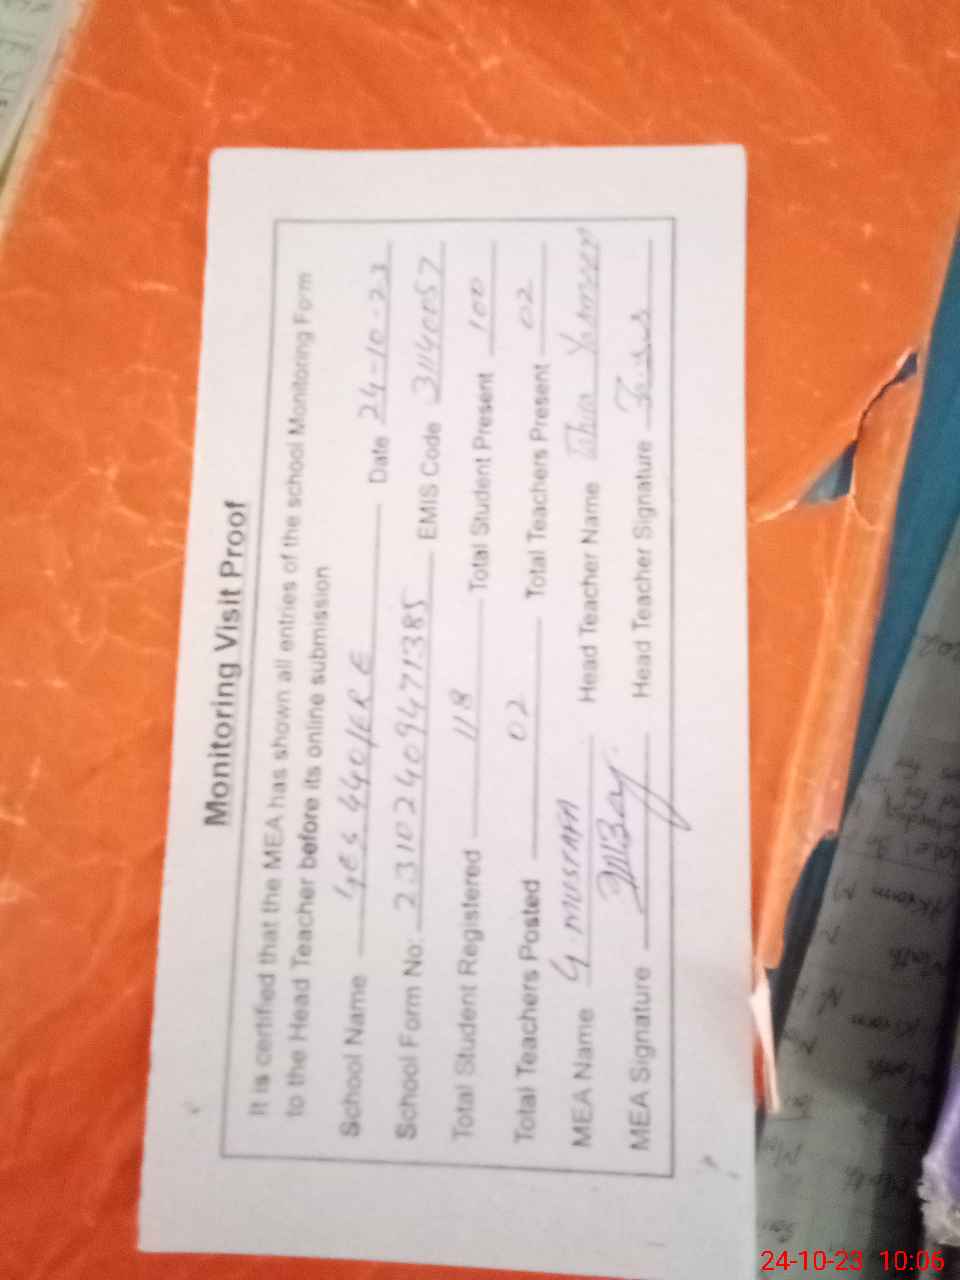 Monitoring Visit Proof
It is certified that the MEA has shown all entries of the school Monitoring Form
to the Head Teacher before its online submission
School Name GES 440/ERE Date 24-10-23
School Form No: 23102409471385 EMIS Code 31140057
Total Student Registered 118 Total Student Present 100
Total Teachers Posted 02 Total Teachers Present 02
MEA Name G. MUSTAFA Head Teacher Name Tahira Yasmeen
MEA Signature Head Teacher Signature
24-10-23 10:06